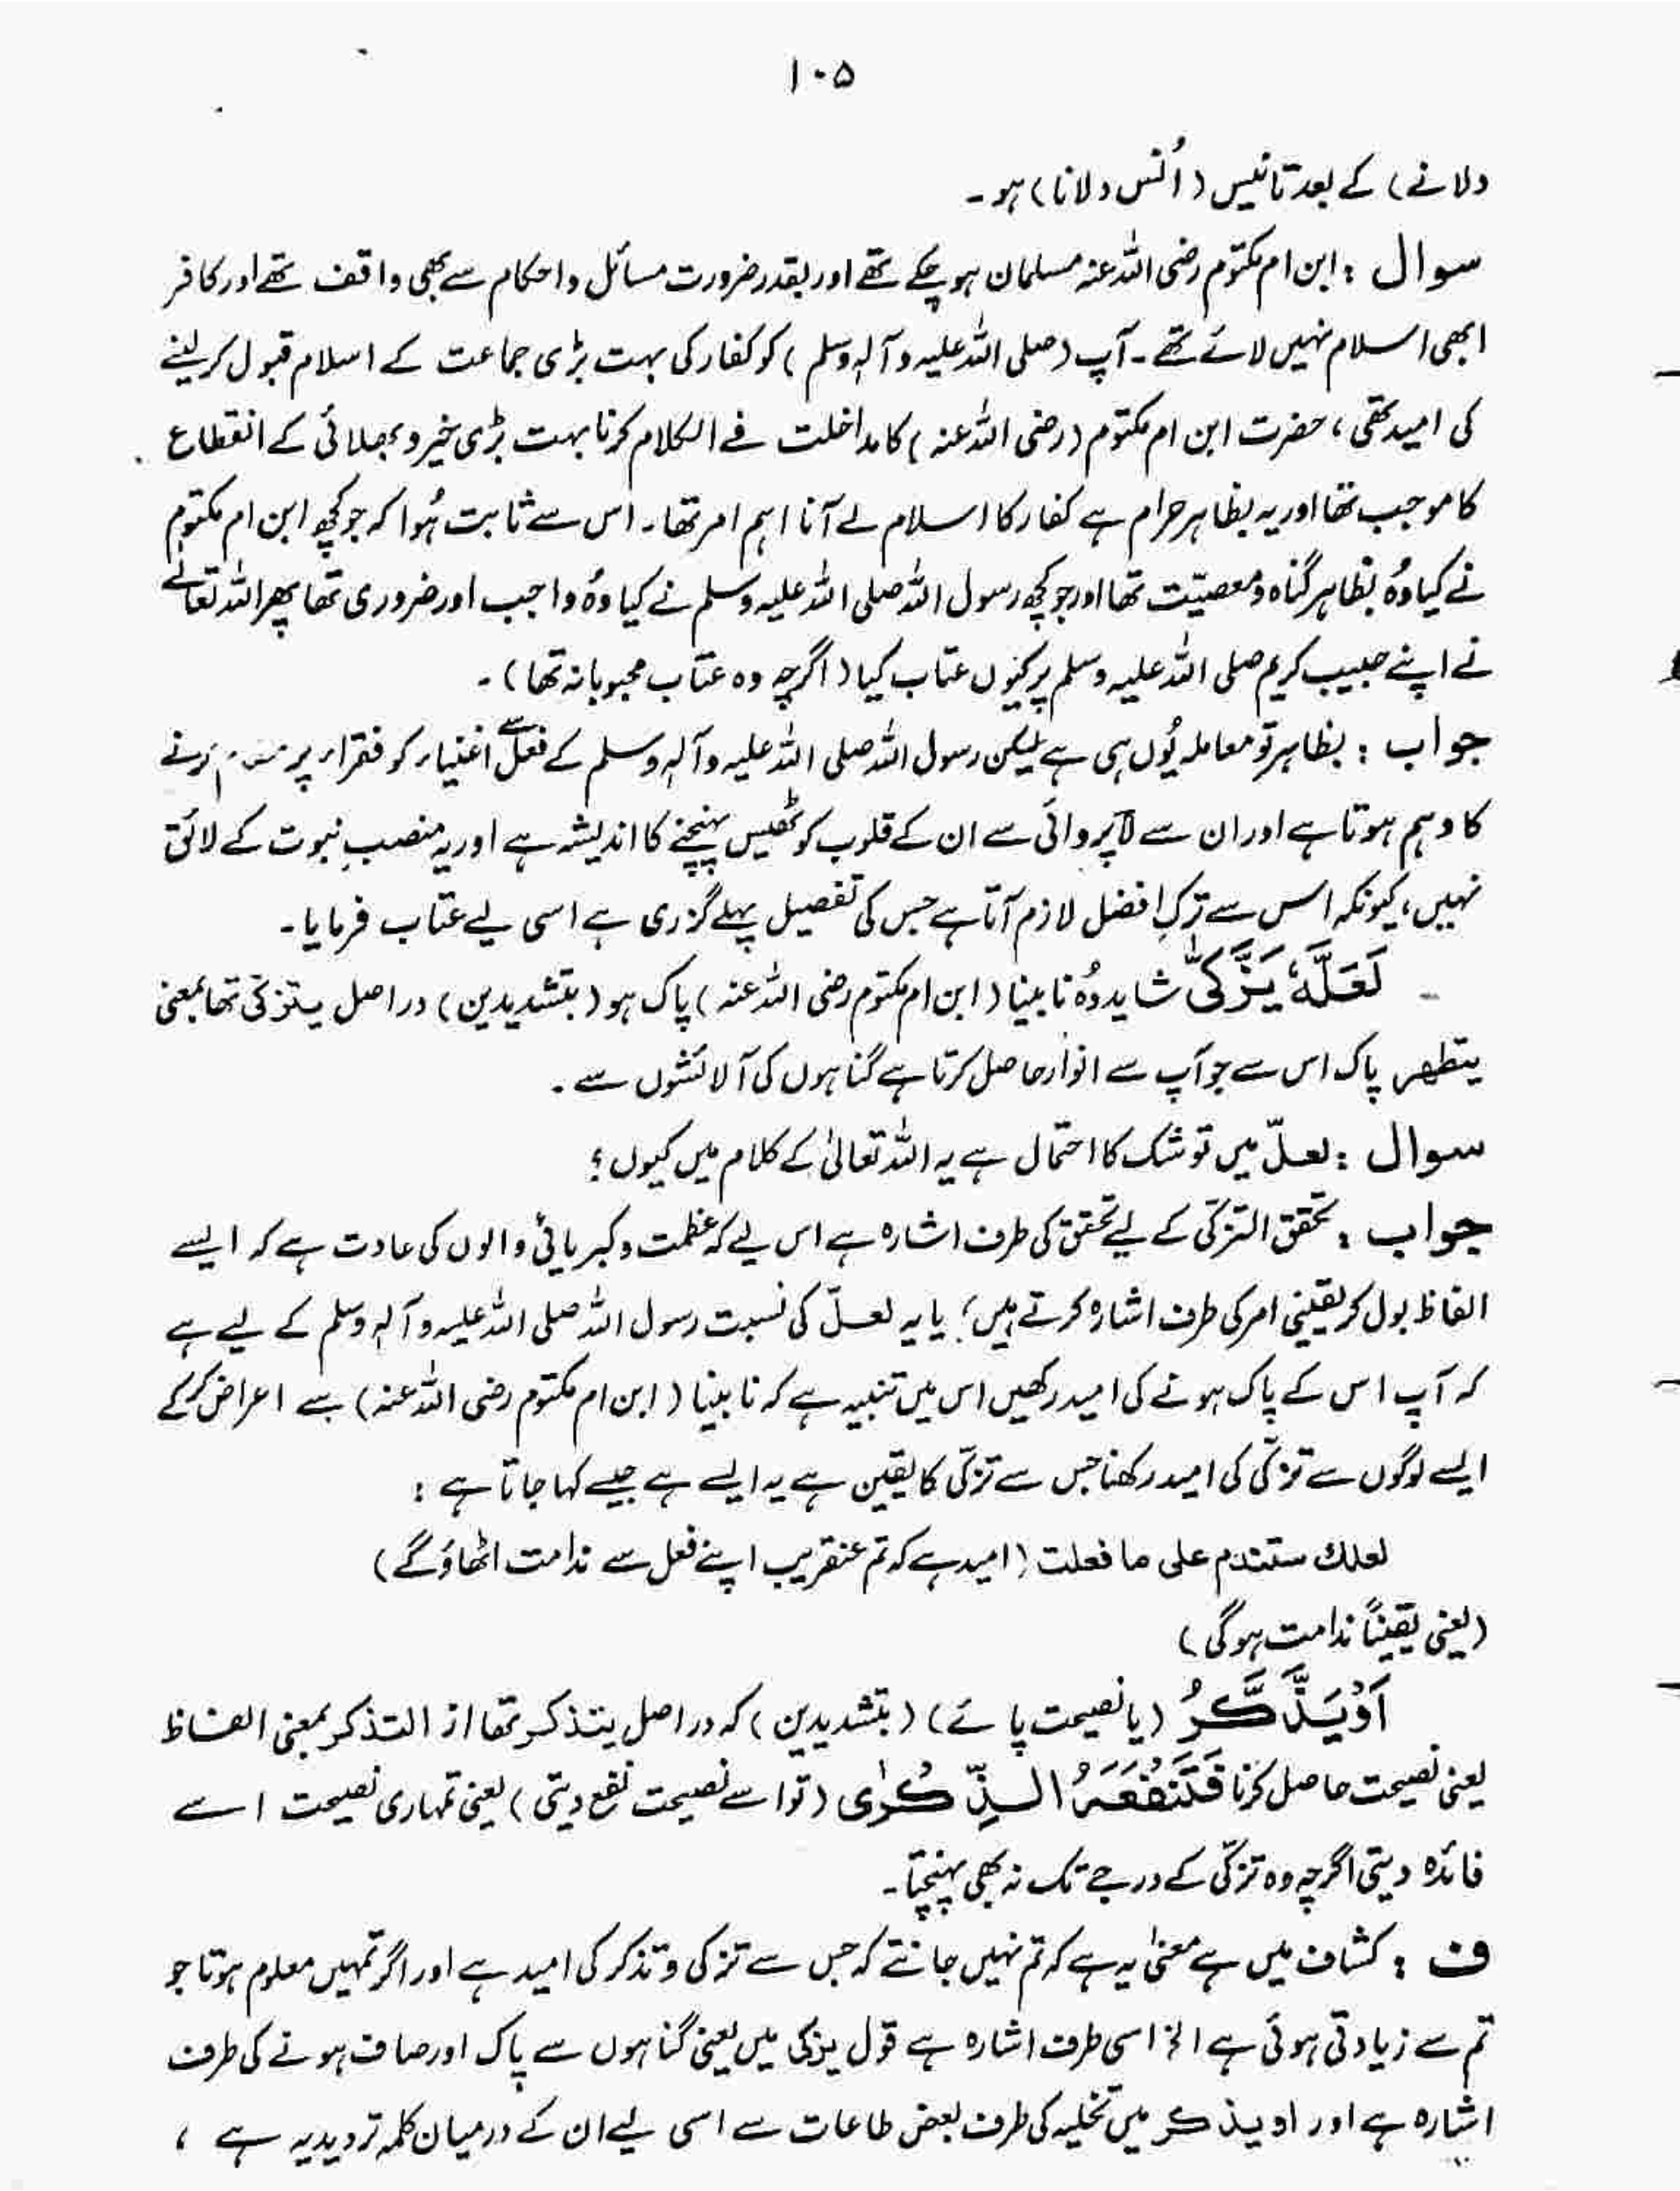 ۱۰۵
دلانے) کے بعد تانیس (اُنس دلانا) ہو۔
سوال : ابن ام مکتوم رضی اللہ عنہ مسلمان ہو چکے تھے اور بقدر ضرورت مسائل و احکام سے بھی واقف تھے اور کافر
ابھی اسلام نہیں لائے تھے۔ آپ (صلی اللہ علیہ وآلہٖ وسلم) کو کفار کی بہت بڑی جماعت کے اسلام قبول کر لینے
کی امید تھی، حضرت ابن ام مکتوم (رضی اللہ عنہ) کا مداخلت فے الکلام کرنا بہت بڑی خیر و بھلائی کے انقطاع
کا موجب تھا اور یہ بظاہر حرام ہے کفار کا اسلام لے آنا اہم امر تھا۔ اس سے ثابت ہُوا کہ جو کچھ ابن ام مکتوم
نے کیا وہُ بظاہر گناہ و معصیّت تھا اور جو کچھ رسول اللہ صلی اللہ علیہ وسلم نے کیا وہُ واجب اور ضروری تھا پھر اللہ تعالےٰ
نے اپنے حبیب کریم صلی اللہ علیہ وسلم پر کیوں عتاب کیا (اگرچہ وہ عتاب محبوبانہ تھا)۔
جواب : بظاہر تو معاملہ یُوں ہی ہے لیکن رسول اللہ صلی اللہ علیہ وآلہٖ وسلم کے فعل سے اغنیاء کو فقراء پر کرنے
کا وہم ہوتا ہے اور ان سے لاپروائی سے ان کے قلوب کو ٹھیس پہنچنے کا اندیشہ ہے اور یہ منصبِ نبوت کے لائق
نہیں، کیونکہ اس سے ترکِ افضل لازم آتا ہے جس کی تفصیل پہلے گزری ہے اسی لیے عتاب فرمایا۔
لَعَلَّهٗ يَزَّكّٰى شاید وہُ نابینا (ابن ام مکتوم رضی اللہ عنہ) پاک ہو (بتشدیدین) دراصل یتزکی تھا بمعنی
یتطھر پاک اس سے جو آپ سے انوار حاصل کرتا ہے گناہوں کی آلائشوں سے۔
سوال : لعلّ میں تو شک کا احتمال ہے یہ اللہ تعالیٰ کے کلام میں کیوں؟
جواب : تحقق التزکّی کے لیے تحقق کی طرف اشارہ ہے اس لیے کہ عظمت و کبریائی والوں کی عادت ہے کہ ایسے
الفاظ بول کر یقینی امر کی طرف اشارہ کرتے ہیں؛ یا یہ لعلّ کی نسبت رسول اللہ صلی اللہ علیہ وآلہٖ وسلم کے لیے ہے
کہ آپ اس کے پاک ہونے کی امید رکھیں اس میں تنبیہ ہے کہ نابینا (ابن ام مکتوم رضی اللہ عنہ) سے اعراض کرکے
ایسے لوگوں سے تزکّی کی امید رکھنا جس سے تزکّی کا یقین ہے یہ ایسے ہے جیسے کہا جاتا ہے :
لعلك ستندم علی ما فعلت (امید ہے کہ تم عنقریب اپنے فعل سے ندامت اٹھاؤگے)
(یعنی یقیناً ندامت ہوگی)
اَوْ يَذَّكَّرُ (یا نصیحت پائے) (بتشدیدین) کہ دراصل یتذکر تھا از التذکر بمعنی الفاظ
یعنی نصیحت حاصل کرنا فَتَنْفَعَهُ الذِّكْرٰى (تو اسے نصیحت نفع دیتی) یعنی تمہاری نصیحت اسے
فائدہ دیتی اگرچہ وہ تزکّی کے درجے تک نہ بھی پہنچتا۔
ف : کشاف میں ہے معنیٰ یہ ہے کہ تم نہیں جانتے کہ جس سے تزکی و تذکر کی امید ہے اور اگر تمہیں معلوم ہوتا جو
تم سے زیادتی ہوئی ہے الخ اسی طرف اشارہ ہے قول یزکی میں یعنی گناہوں سے پاک اور صاف ہونے کی طرف
اشارہ ہے اور او یذکر میں تحلیہ کی طرف بعض طاعات سے اسی لیے ان کے درمیان کلمہ تردیدیہ ہے ،